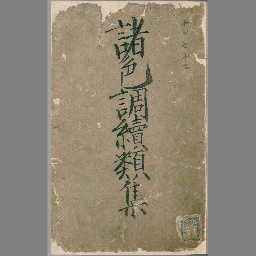 諸色調續類集